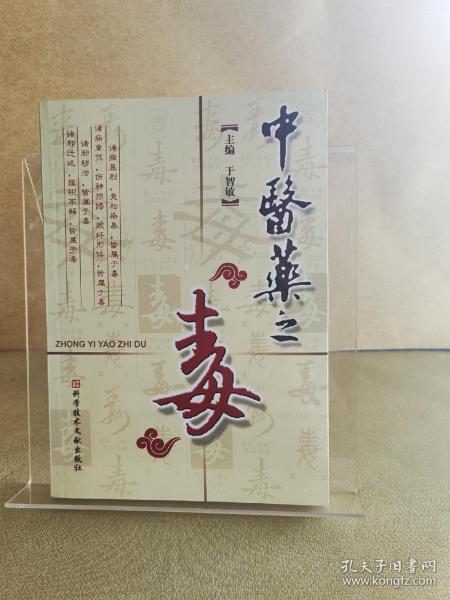 中醫藥之
毒
【主编 于智敏】
诸病暴烈，竟相染易，皆属于毒
诸病重笃，伤神损络，败坏形体，皆属于毒
诸邪秽浊，皆属于毒
诸邪迁延，蕴积不解，皆属于毒
ZHONG YI YAO ZHI DU
科学技术文献出版社
孔夫子旧书网
www.kongfz.com